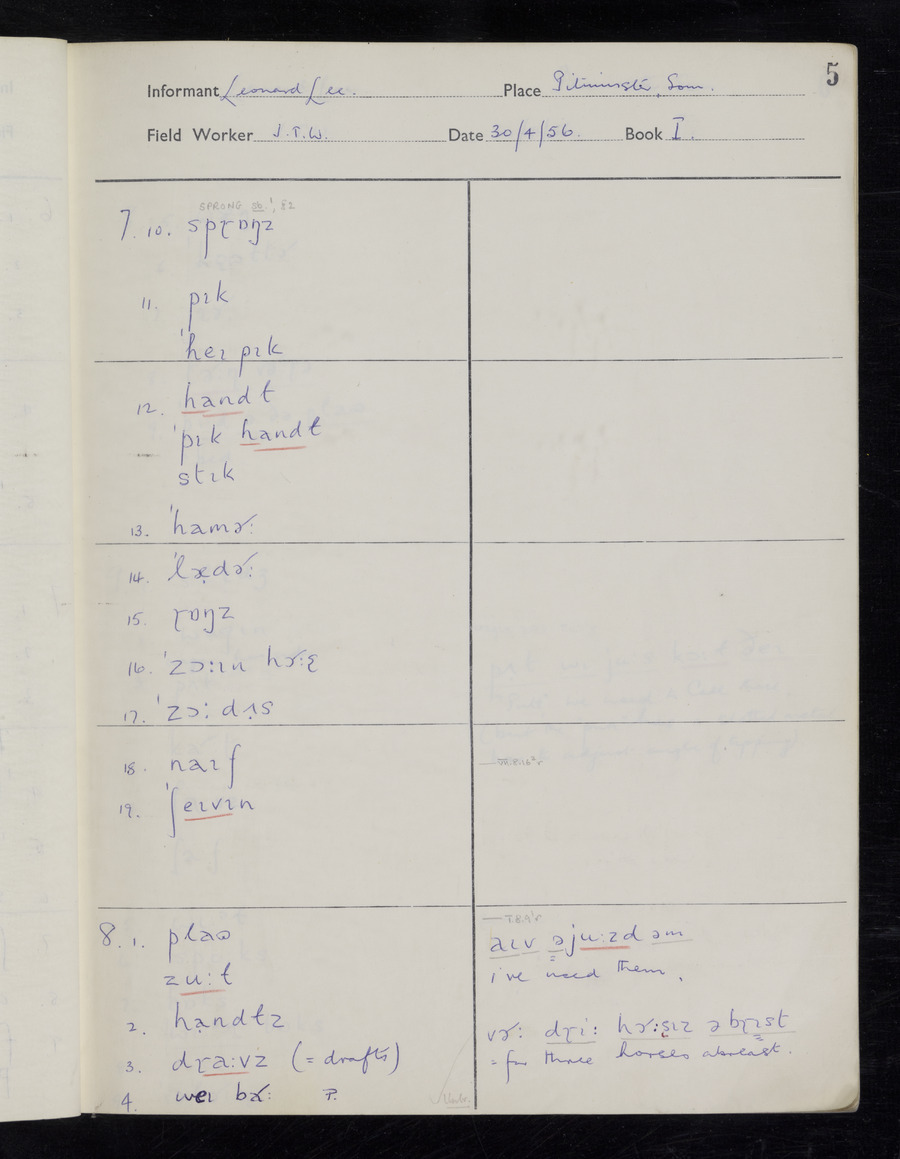 5
Informant Leonard Lee. Place Pitminster, Som.
Field Worker J.T.W. Date 30/4/56. Book I.
SPRONG sb.¹, §2
7. 10. spɽɒŋz
11. pɪk
ˈheɪ pɪk
12. handɫ
ˈpɪk handɫ
stɪk
13. ˈhamɚ:
14. ˈlæ̣dɚ:
15. ɽɒŋz
16. ˈzɔ:ɪn
17. ˈzɔ: dʌ̣s
18. naɪf
19. ˈʃeɪvɪn
8. 1. plaʊ
zu:ɫ
2. hạndɫz
3. dɽa:vz (= drafts)
4. weɪ P.
T.B.9'r
aɪv əju:zd əm
i've used them.
vɚ: dɽi: əbɽɪst
= for three horses abreast.